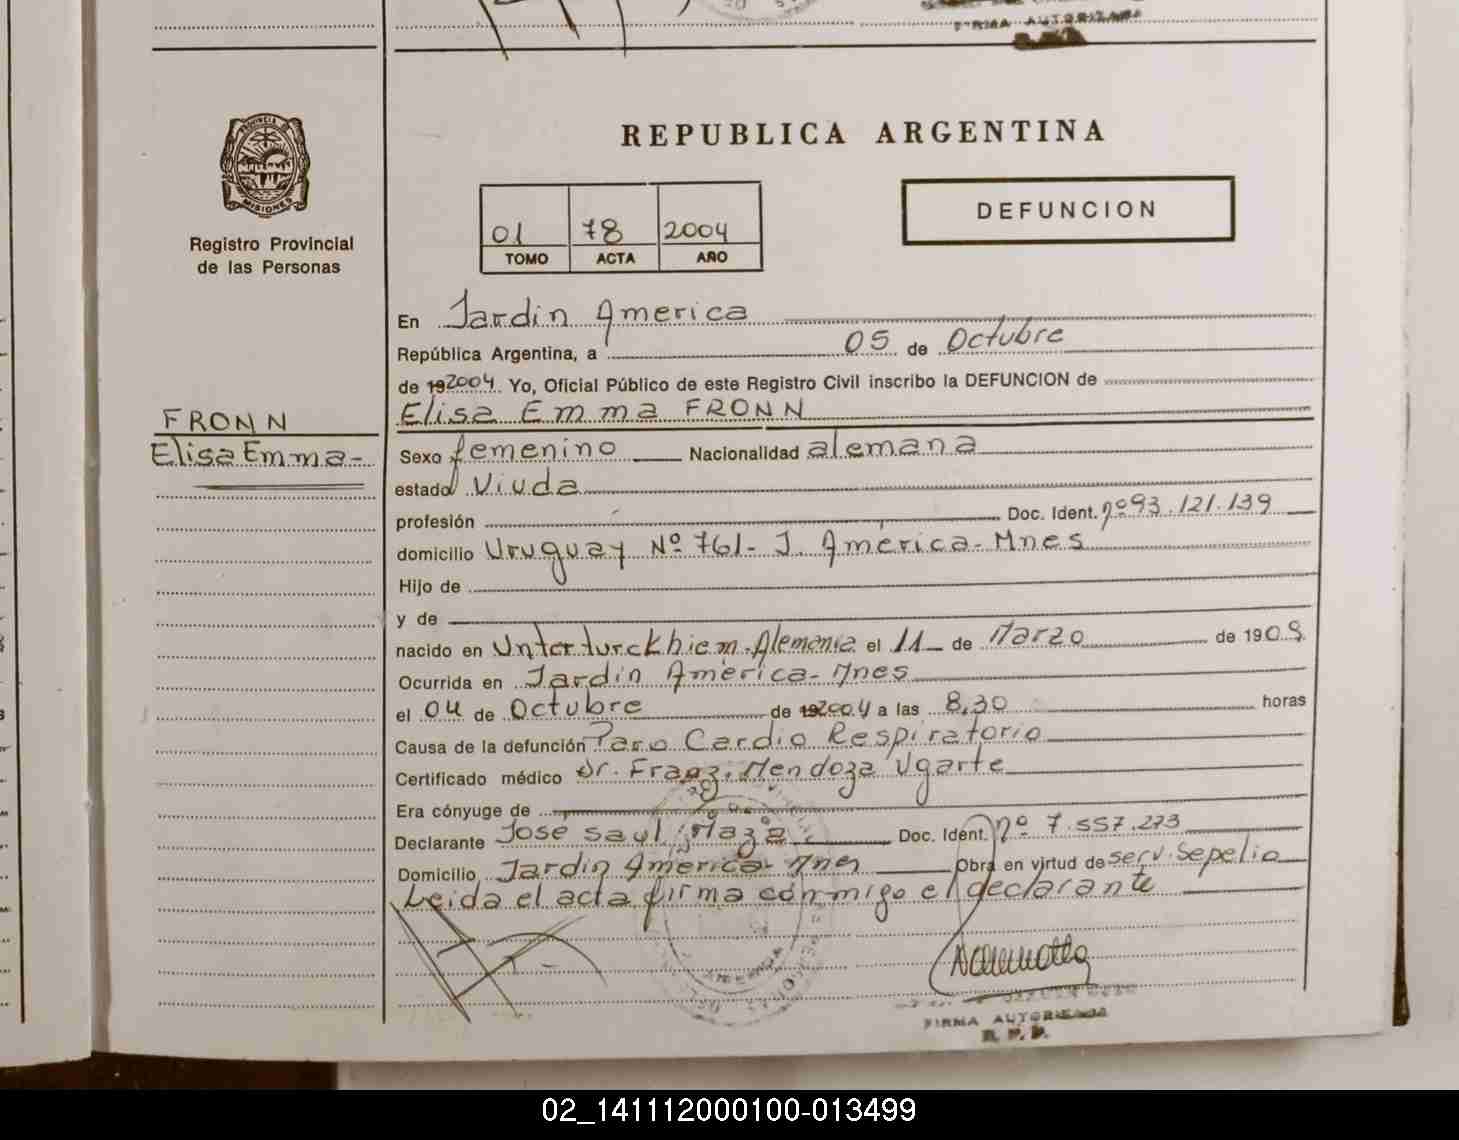 FIRMA AUTORIZADA
PROVINCIA DE
MISIONES
Registro Provincial
de las Personas
REPUBLICA ARGENTINA
01 78 2004
TOMO ACTA AÑO
DEFUNCION
En Jardin America
República Argentina, a 05 de Octubre
de 192004. Yo, Oficial Público de este Registro Civil inscribo la DEFUNCION de
Elisa Emma FRONN
FRONN
Elisa Emma-
Sexo femenino Nacionalidad alemana
estado Viuda
profesión Doc. Ident. nº 93.121.139
domicilio Uruguay Nº 761- J. America-Mnes
Hijo de
y de
nacido en Unterturckhiem-Alemania el 11 de Marzo de 1909.
Ocurrida en Jardin America-Mnes
el 04 de Octubre de 192004 a las 8,30 horas
Causa de la defunción Paro Cardio Respiratorio
Certificado médico Dr. Franz. Mendoza Ugarte
Era cónyuge de
Declarante Jose Saul Maza Doc. Ident. nº 7.557.273
Domicilio Jardin America-Mnes Obra en virtud de serv. Sepelio
Leida el acta firma conmigo el declarante
FIRMA AUTORIZADA
R. P. P.
02_141112000100-013499